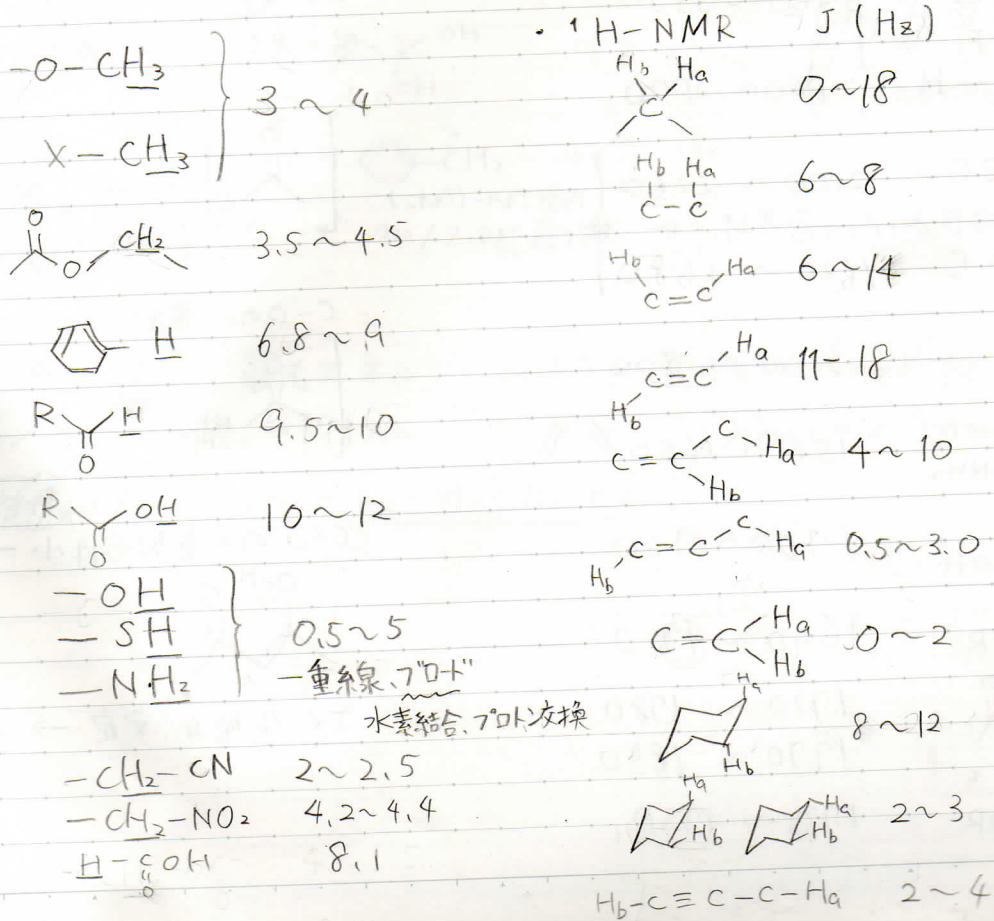 -O-CH3
X-CH3
3～4
O
O CH2
3.5～4.5
H
6.8～9
R H
O
9.5～10
R OH
O
10～12
-OH
-SH
-NH2
0.5～5
一重線、ブロード
水素結合、プロトン交換
-CH2-CN 2～2.5
-CH2-NO2 4.2～4.4
H-COH 8.1
O
・¹H-NMR J (Hz)
Hb Ha
C
0～18
Hb Ha
C-C
6～8
Hb Ha
C=C
6～14
Ha
C=C
Hb
11-18
C
C=C Ha
Hb
4～10
C
C=C Ha
Hb
0.5～3.0
Ha
C=C
Hb
0～2
Ha
Hb
8～12
Ha
Hb
Ha
Hb
2～3
Hb-C≡C-C-Ha 2～4